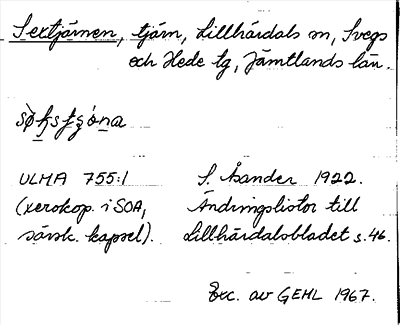 Sextjärnen, tjärn, Lillhärdals sn, Svegs
och Hede tg, Jämtlands län.
ULMA 755:1
(xerokop. i SOA,
särsk. kapsel).
S. Åsander 1922.
Ändringslistor till
Lillhärdalsbladet s. 46.
Exc. av GEHL 1967.